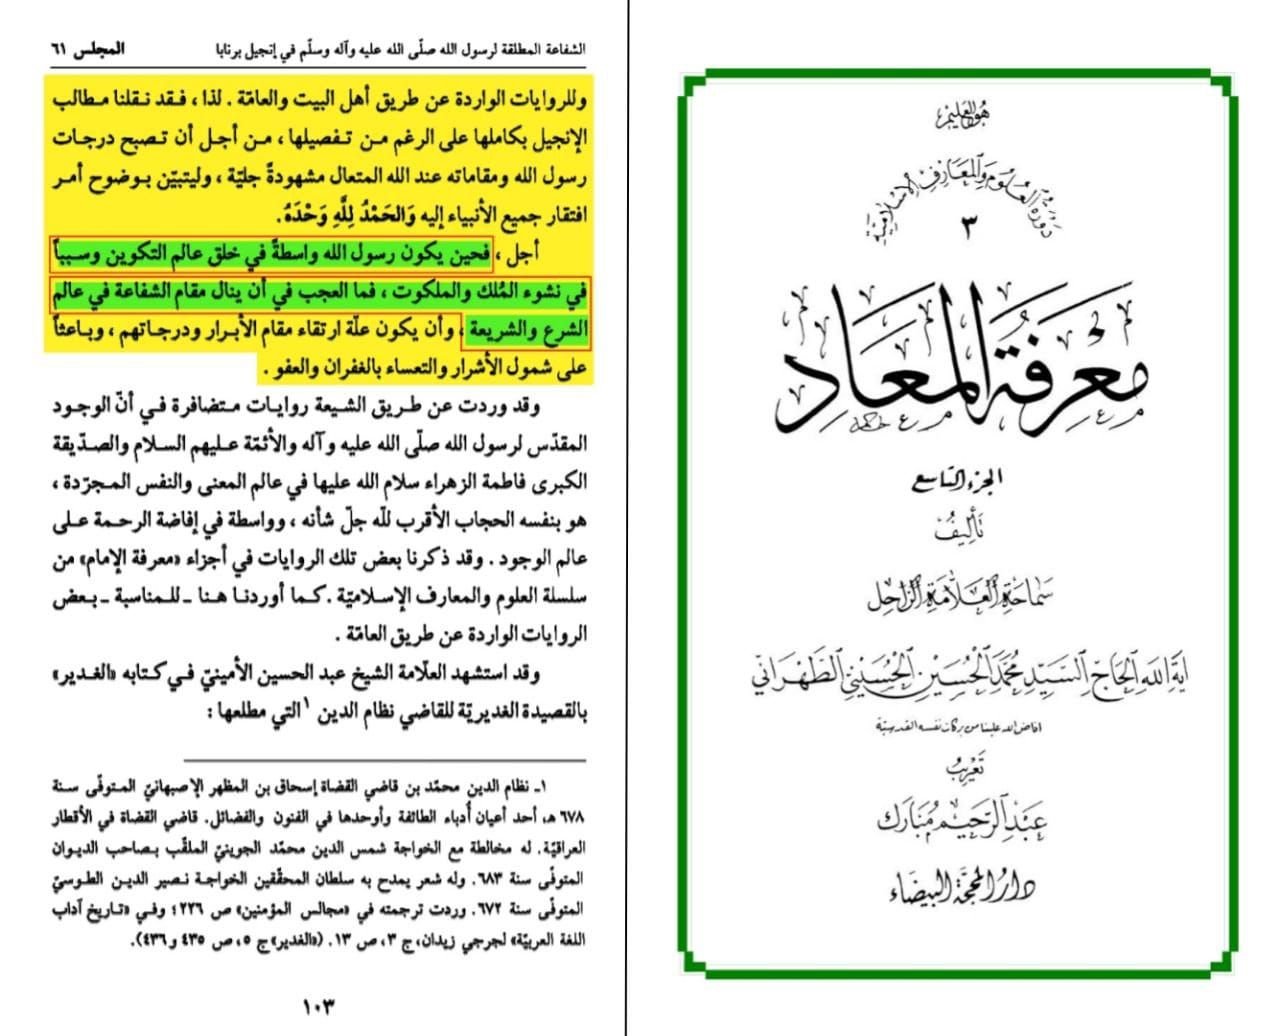 هو العليم
دورة العلوم والمعارف الإسلامية
٣
معرفة المعاد
الجزء التاسع
تأليف
سماحة العلامة الراحل
آية الله الحاج السيد محمد الحسين الحسيني الطهراني
افاض الله علينا من بركات نفسه القدسية
تعريب
عبد الرحيم مبارك
دار المحجة البيضاء
الشفاعة المطلقة لرسول الله صلّى الله عليه وآله وسلّم في إنجيل برنابا المجلس ٦١
وللروايات الواردة عن طريق أهل البيت والعامّة . لذا ، فـقد نـقلنا مـطالب
الإنجيل بكاملها على الرغم من تـفصيلها ، مـن أجـل أن تـصبح درجـات
رسول الله ومقاماته عند الله المتعال مشهودةً جليّة ، وليتبيّن بـوضوح أمـر
افتقار جميع الأنبياء إليه وَالحَمْدُ لِلَّهِ وَحْدَهُ.
أجل ، فحين يكون رسول الله واسطةً في خلق عالم التكوين وسـبباً
في نشوء المُلك والملكوت ، فما العجب في أن ينال مقام الشفاعة في عالم
الشرع والشريعة ، وأن يكون علّة ارتقاء مقام الأبـرار ودرجـاتهم ، وبـاعثاً
على شمول الأشرار والتعساء بالغفران والعفو .
وقد وردت عن طـريق الشيعة روايـات مـتضافرة فـي أنّ الوجـود
المقدّس لرسول الله صلّى الله عليه وآله والأئمّة عـليهم السـلام والصـدّيقة
الكبرى فاطمة الزهراء سلام الله عليها في عالم المعنى والنفس المـجرّدة ،
هو بنفسه الحجاب الأقرب للّه جلّ شأنه ، وواسطة في إفاضة الرحـمة عـلى
عالم الوجود . وقد ذكرنا بعض تلك الروايات في أجزاء «معرفة الإمام» من
سلسلة العلوم والمعارف الإسـلاميّة . كـما أوردنـا هـنا ـ للـمناسبة ـ بـعض
الروايات الواردة عن طريق العامّة .
وقد استشهد العلّامة الشيخ عبد الحسين الأمينيّ فـي كـتابه «الغـدير»
بالقصيدة الغديريّة للقاضي نظام الدين ١ التي مطلعها :
١ـ نظام الدين محمّد بن قاضي القضاة إسحاق بن المظهر الإصبهانيّ المـتوفّى سـنة
٦٧٨ هـ، أحد أعيان أُدباء الطائفة وأوحدها في الفنون والفضائل. قاضي القضاة في الأقطار
العراقيّة. له مخالطة مع الخواجة شمس الدين محمّد الجوينيّ الملقّب بـصاحب الديـوان
المتوفّى سنة ٦٨٣. وله شعر يمدح به سلطان المحقّقين الخواجـة نـصير الديـن الطـوسيّ
المتوفّى سنة ٦٧٢. وردت ترجمته في «مجالس المؤمنين» ص ٢٢٦؛ وفـي «تـاريخ آداب
اللغة العربيّة» لجرجي زيدان، ج ٣، ص ١٣. («الغدير» ج ٥، ص ٤٣٥ و ٤٣٦).
١٠٣